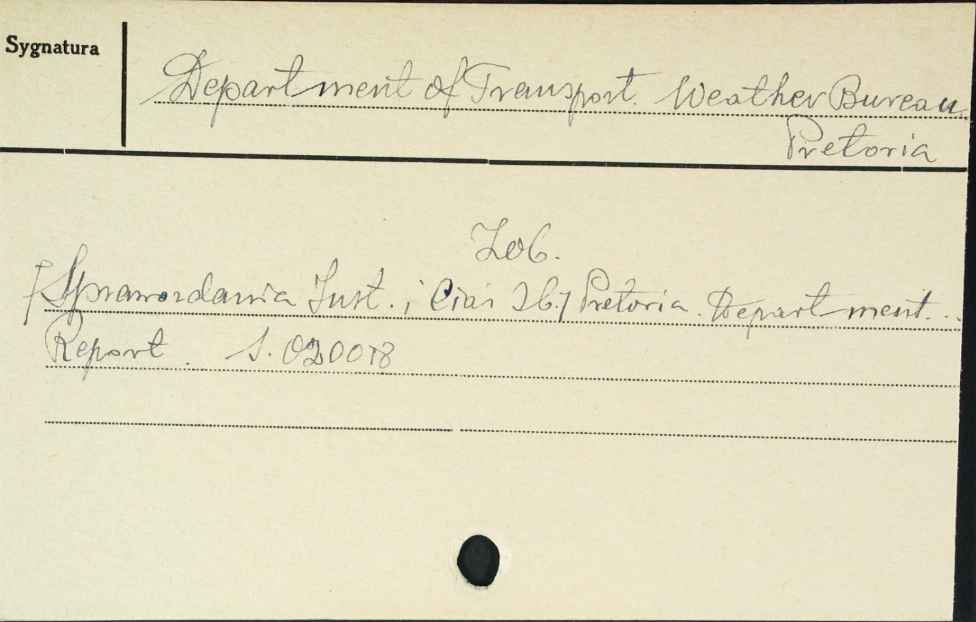 Sygnatura
Department of Transport. Weather Bureau
Pretoria
Zob.
[Sprawozdania Inst. i Ciał Zb.] Pretoria. Department...
Report. S. 020018